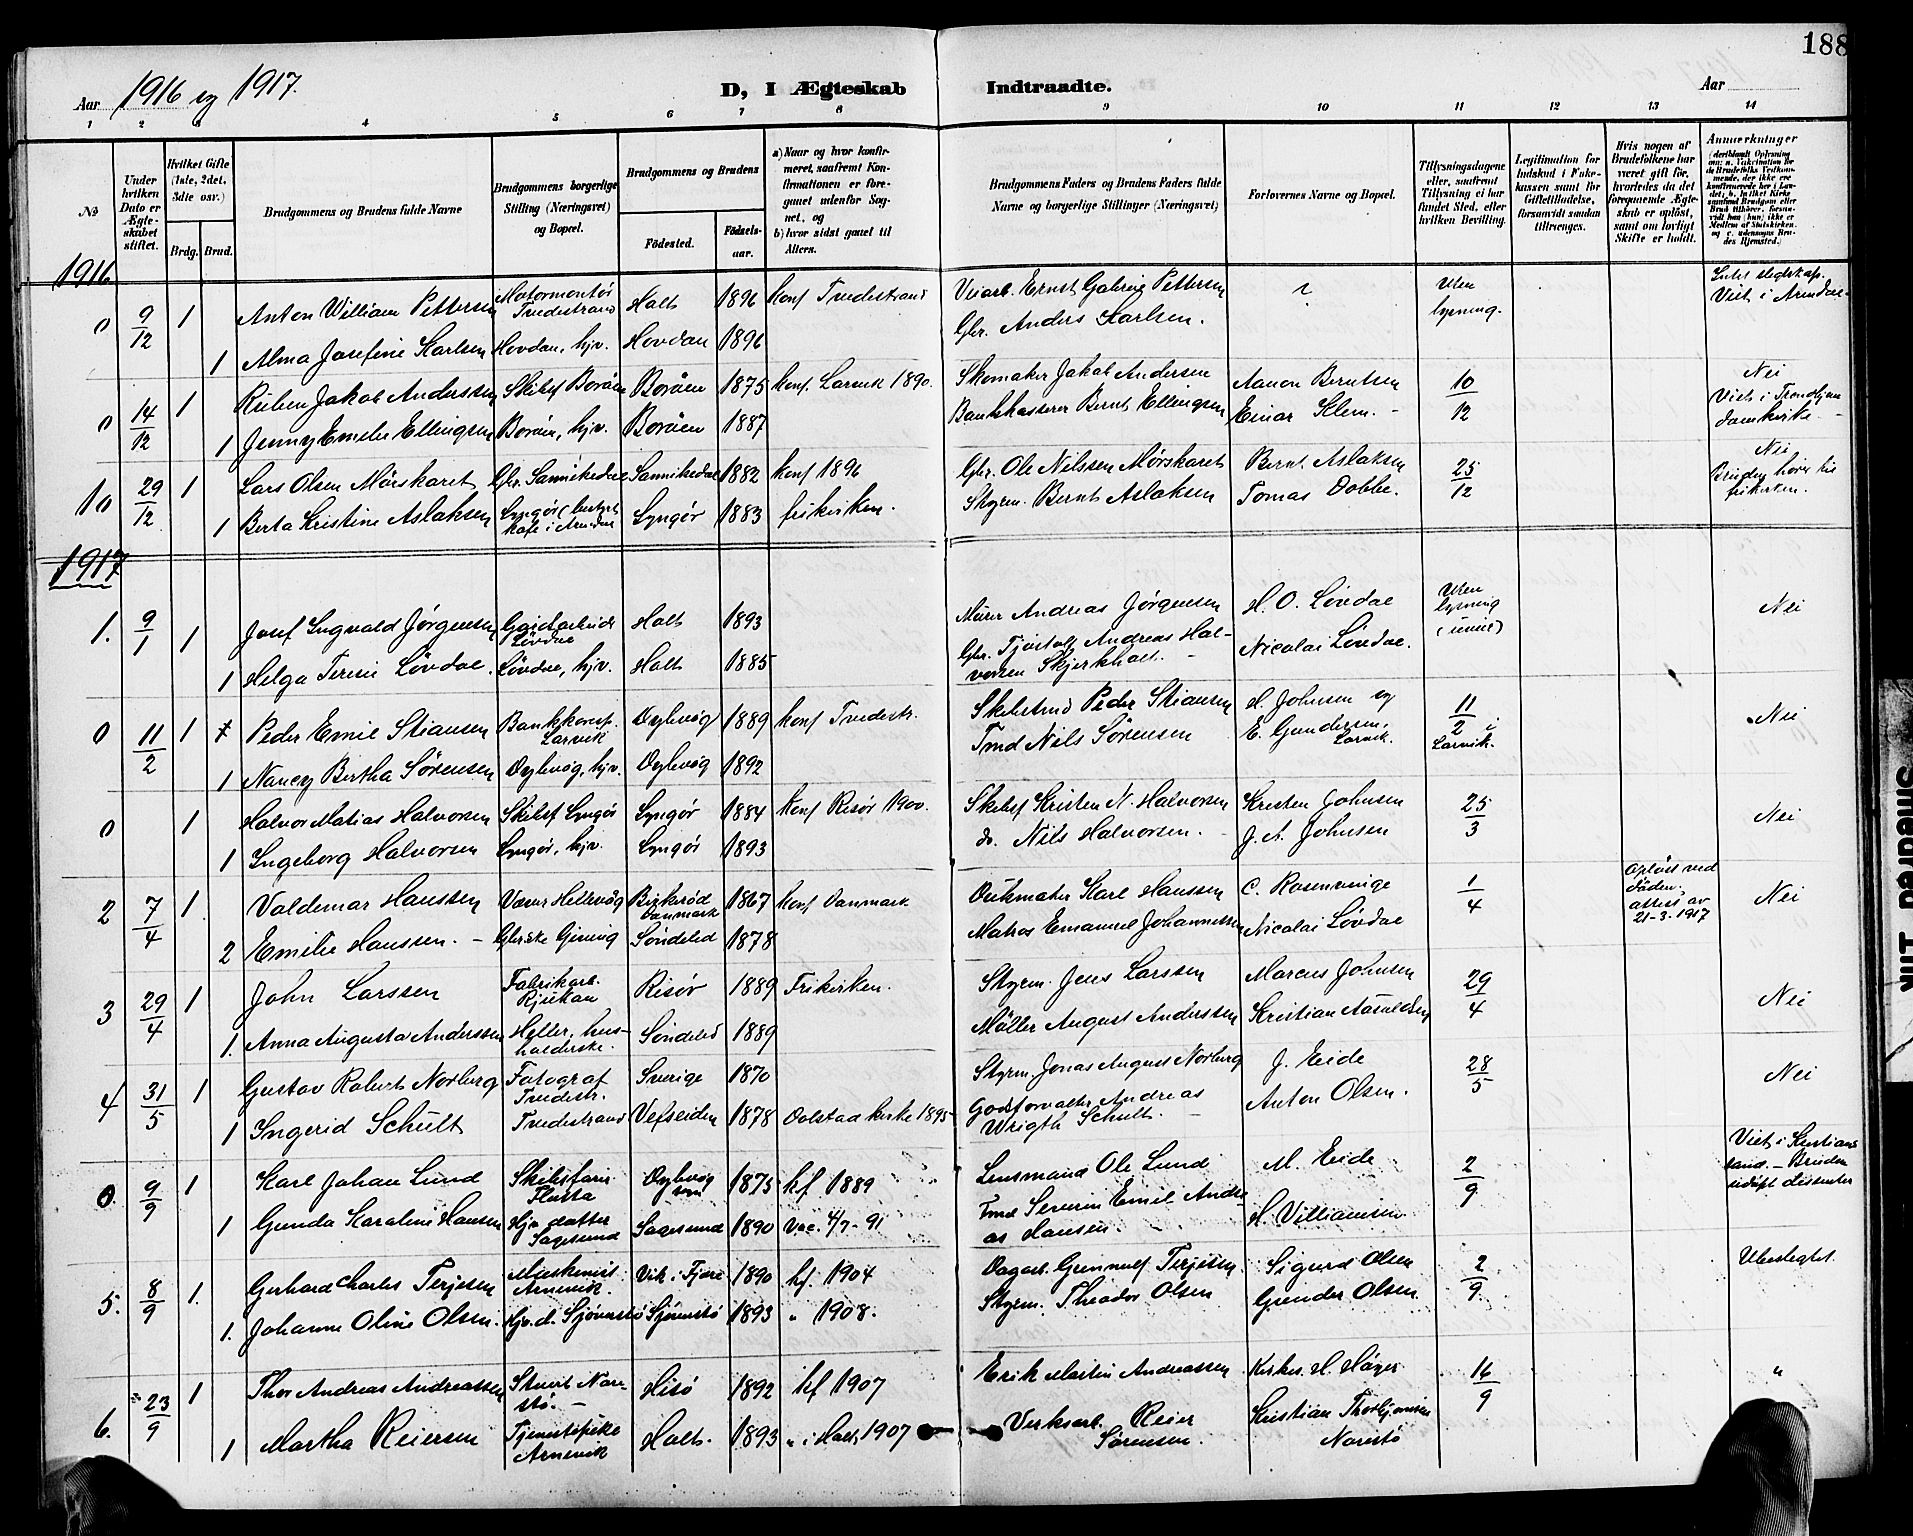 188
Aar 1916 og 1917.
D, I Ægteskab Indtraadte.
Aar
1 2 3 4 5 6 7 8 9 10 11 12 13 14
No
Under hvilken Dato er Ægteskabet stiftet.
Hvilket Gifte (1ste, 2det, 3die osv.)
Brdg. Brud.
Brudgommens og Brudens fulde Navne
Brudgommens borgerlige Stilling (Næringsvei) og Bopæl.
Brudgommens og Brudens
Födested. Födselsaar.
a) Naar og hvor konfirmeret, saafremt Konfirmationen er foregaaet udenfor Sognet, og
b) hvor sidst gaaet til Alters.
Brudgommens Faders og Brudens Faders fulde Navne og borgerlige Stillinger (Næringsvei)
Forlovernes Navne og Bopæl.
Tillysningsdagene eller, saafremt Tillysning ei har fundet Sted, efter hvilken Bevilling.
Legitimation for Indskud i Enkekassen samt for Giftetilladelse, forsaavidt saadan tiltrænges.
Hvis nogen af Brudefolkene har været gift för, hvorledes da det foregaaende Ægteskab er oplöst, samt om lovligt Skifte er holdt.
Anmærkninger
1916
0 9/12 1 Anton William Pettersen Motormontör Tvedestrand Holt 1896 Konf Tvedestrand Veiarb. Ernst Gabriel Pettersen Uten lysning. Viet i Arendal
1 Alma Josefine Karlsen Hovdan, hjv. Hovdan 1896 Gbr. Anders Karlsen.
0 14/12 1 Ruben Jakob Anderssen Skibsf Borøen Borøen 1875 Konf. Larvik 1890. Skomaker Jakob Andersen Aanon Berntsen 10/12 Nei Viet i Trondhjem domkirke
1 Jenny Emelie Ellingsen Borøen, hjv. Borøen 1887 Bankkasserer Bernt Ellingsen Einar Klem.
10 29/12 1 Lars Olsen Mörskaret Gbr. Sannikedal Sannikedal 1882 Konf 1896 Gbr. Ole Nilssen Mörskaret Bernt Aslaksen 25/12 Nei Bruden hører til frikirken.
1 Berta Kristine Aslaksen Lyngör (bestyrer kafe i Arendal Lyngör 1883 frikirken. Skyrm. Bernt Aslaksen Tomas Dobbe.
1917
1. 9/1 1 Josef Ingvald Jörgensen Gaardarbeid. Lövdal Holt 1893 Murer Andreas Jörgensen H. O. Lövdal Uten lysning Nei
1 Helga Terese Lövdal. Lövdal, hjv. Holt 1885 Gbr. Tjostolf Andreas Halvorsen Skjerkholt. Nicolai Lövdal.
0 11/2 1 Peder Emil Stiansen Bankkoresp. Larvik Dybvög 1889 Konf Tvedestr. Skibstmd Peder Stiansen H. Johnsen og E. Gundersen, Larvik. 11/2 i Larvik. Nei
1 Nancy Bertha Sörensen Dybvög, hjv. Dybvög 1892 Tmd Nils Sörensen
0 1 Halvor Matias Halvorsen Skibsf Lyngör Lyngör 1884 Konf Risör 1900. Skibsf Kristen N. Halvorsen Kristen Johnsen 25/3 Nei
1 Ingeborg Halvorsen Lyngör, hjv. Lyngör 1893 do. Nils Halvorsen. J. A. Johnsen
2 7/4 1 Valdemar Hanssen Væver Hellevög Birkeröd Danmark 1867 Konf Danmark Dukmaker Karl Hanssen C. Rosenvinge 1/4 Oplöst ved döden. attest av 21-3.1917 Nei
2 Emilie Hanssen. Gbrske Gjeving Söndeled 1878 Matros Emanuel Johannessen Nicolai Lövdal
3 29/4 1 John Larssen Fabrikarb. Rjukan Risör 1889 Frikirken. Styrm. Jens Larssen Marcus Johnsen 29/4 Nei
1. Anna Augusta Anderssen Heller, husholderske. Söndeled 1889 Möller August Anderssen Kristian Aasuldsen
4 31/5 1 Gustav Robert Norberg Fotograf Tvedestr. Sverige 1870 Styrm. Jonas August Norberg J. Eide 28/5 Nei
1 Ingerid Schult Tvedestrand Vefseiden 1878 Dolstad kirke 1895 Godsforvalter Andreas Wrigth Schult. Anton Olsen.
0. 9/9 1 Karl Johan Lund Skibsförer Flosta Dybvög sogn 1875 kf 1889 Lensmand Ole Lund M. Eide 2/9 Viet i Kristiansand. – Bruden dissenter
1 Gunda Karoline Hansen Hjv. datter Sagesund Sagesund 1890 Vac. 4/7 - 91 Tmd Severin Emil Andreas Hansen. H. Villiamsen
5. 8/9 1. Gerhard Charles Terjesen Maskinist Arnevik. Vik i Fjære 1890 kf. 1904 Dagarb. Grimulf Terjesen. Sigurd Olsen 2/9. Ubeslegtet.
1. Johanne Oline Olsen. Hjv. d. Sjöverstö Sjöverstö 1893 " 1908. Styrm. Theodor Olsen Gunder Olsen
6. 23/9 1 Thor Andreas Andreassen Stuert Narestö. Hisö 1892 kf 1907 Erik Martin Andreassen Kirkes. H. Höyer 16/9 "
1 Martha Reiersen Tjenestepike Arnevik Holt. 1893 " i Holt, 1907 Verksarb. Reier Sörensen. Kristian Thorbjörnsen Narestö